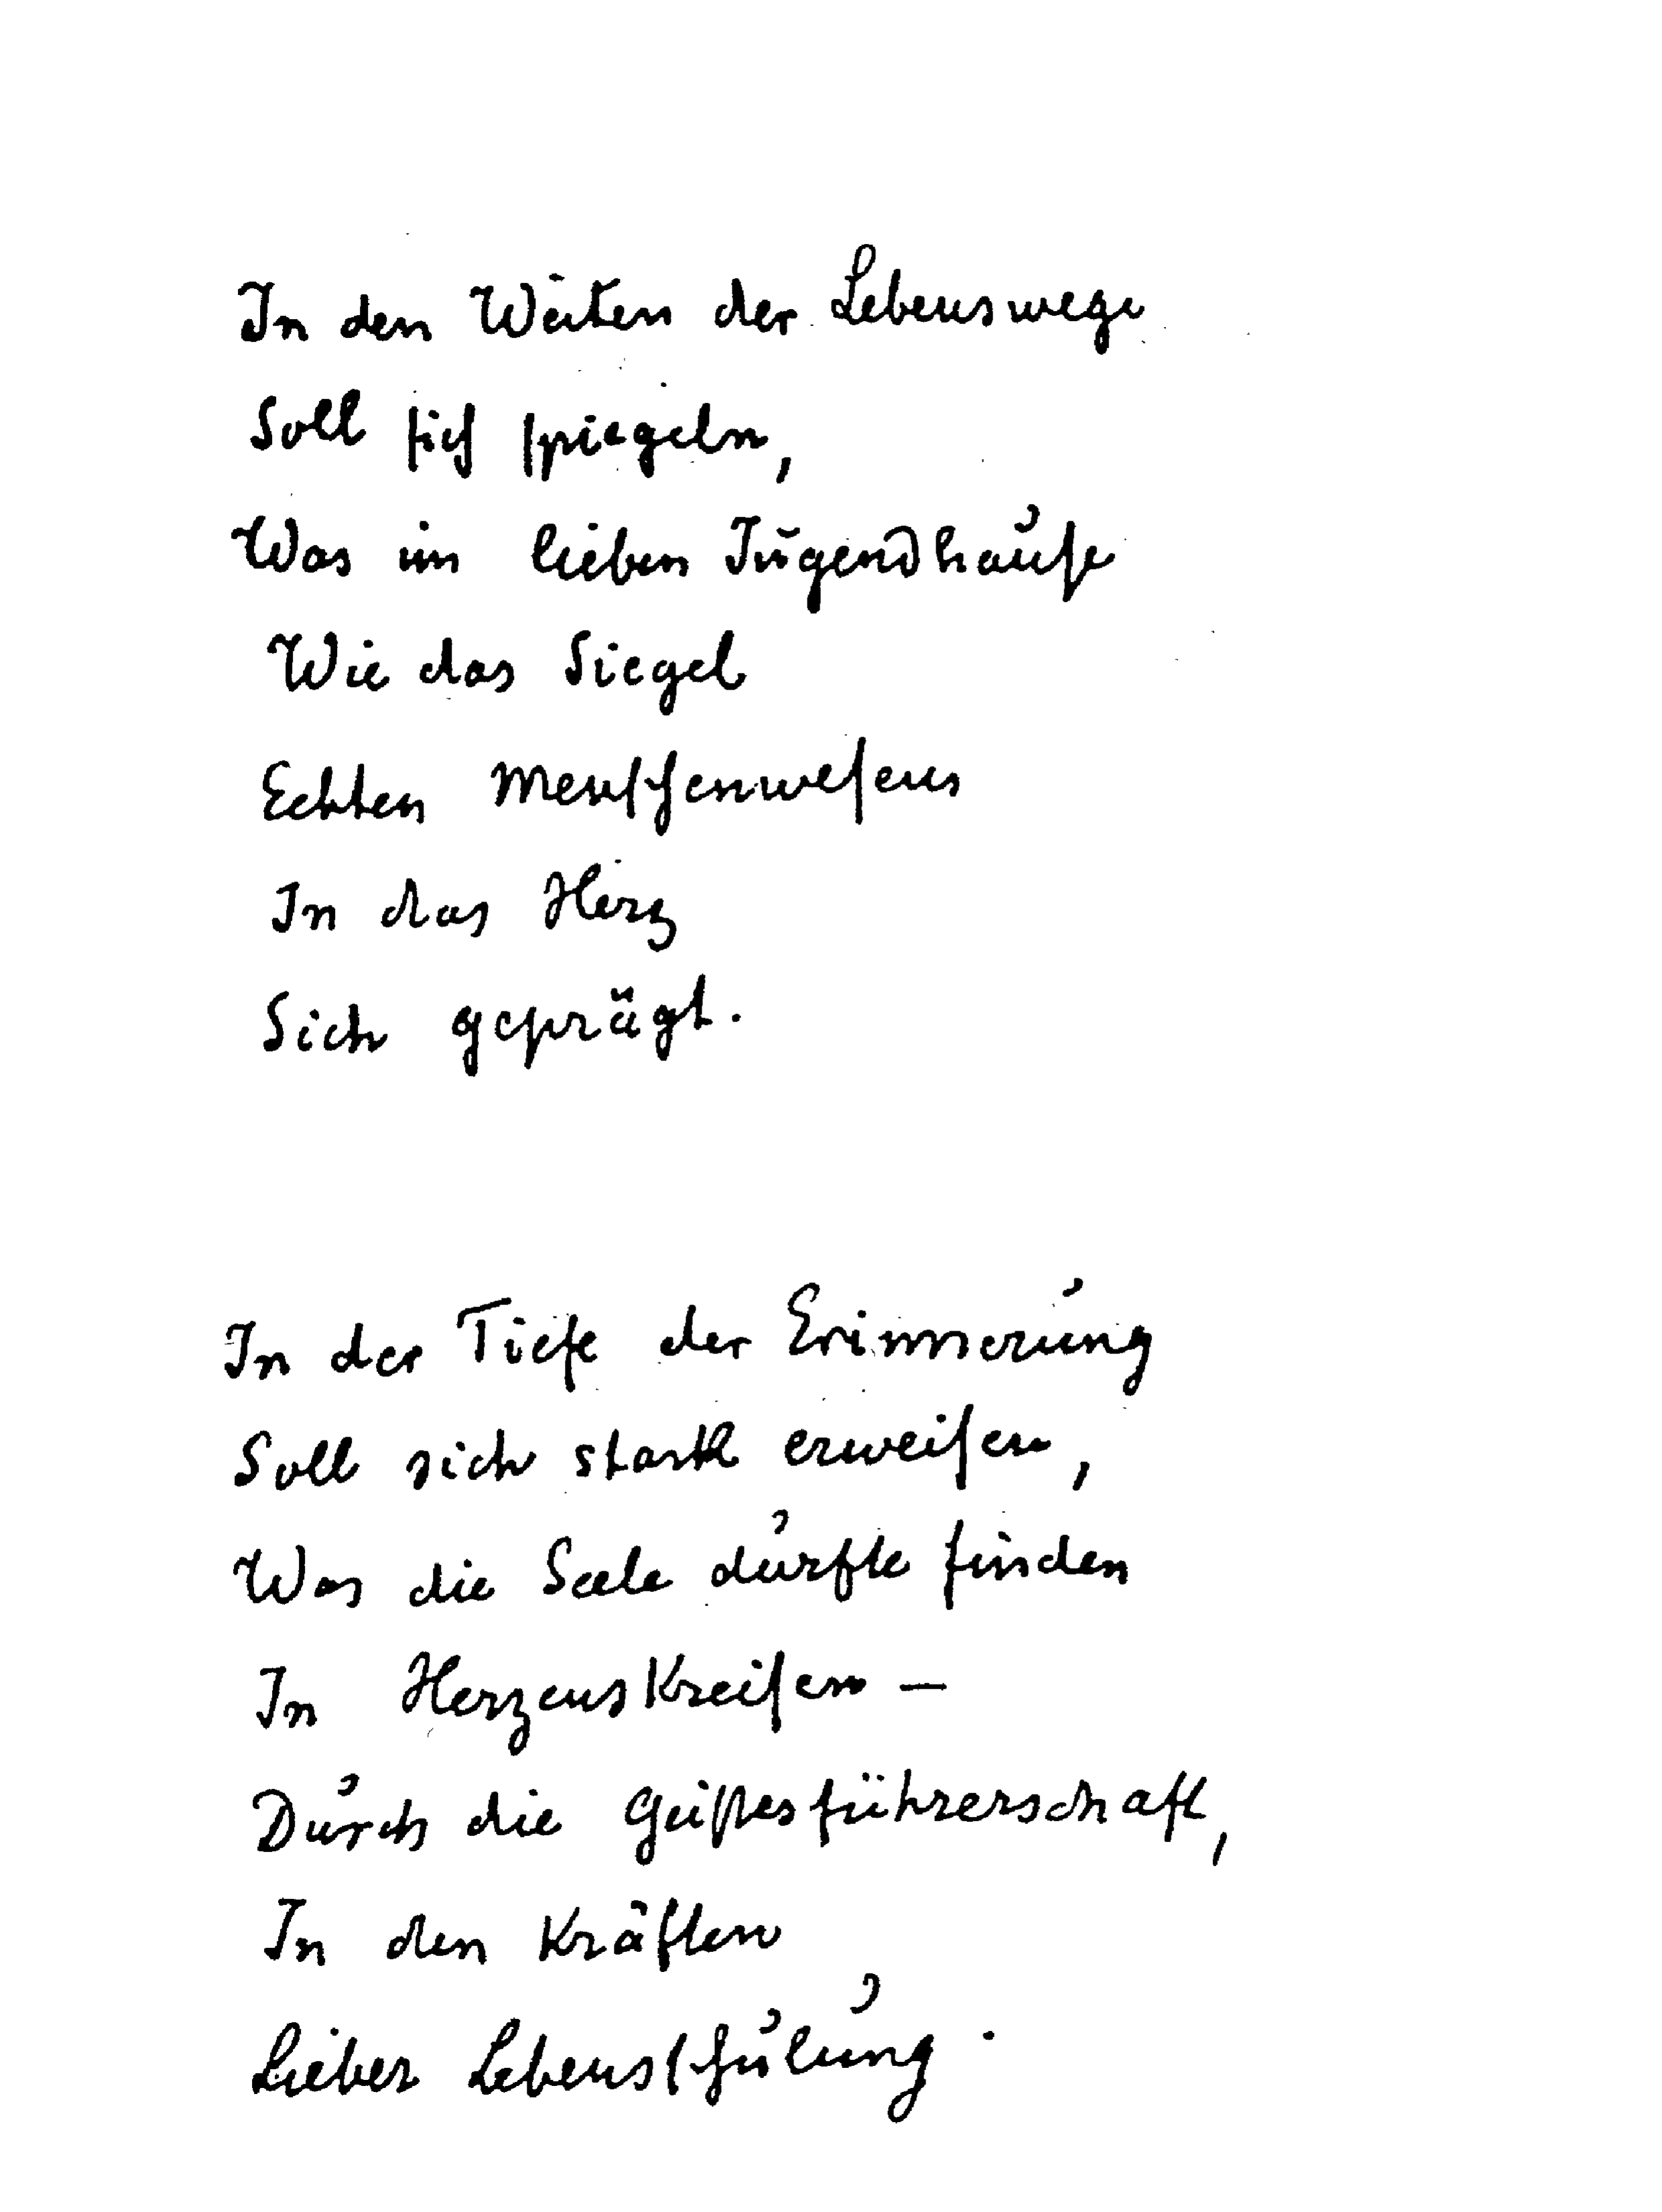 In den Weiten der Lebenswege
Soll sich spiegeln,
Was im lieben Jugendhause
Wie das Siegel
Echten Menschenwesens
In das Herz
Sich geprägt.
In der Tiefe der Erinnerung
Soll sich stark erweisen,
Was die Seele durfte finden
In Herzenskreisen –
Durch die Geistesführerschaft,
In den Kräften
Lieber Lebensschulung.